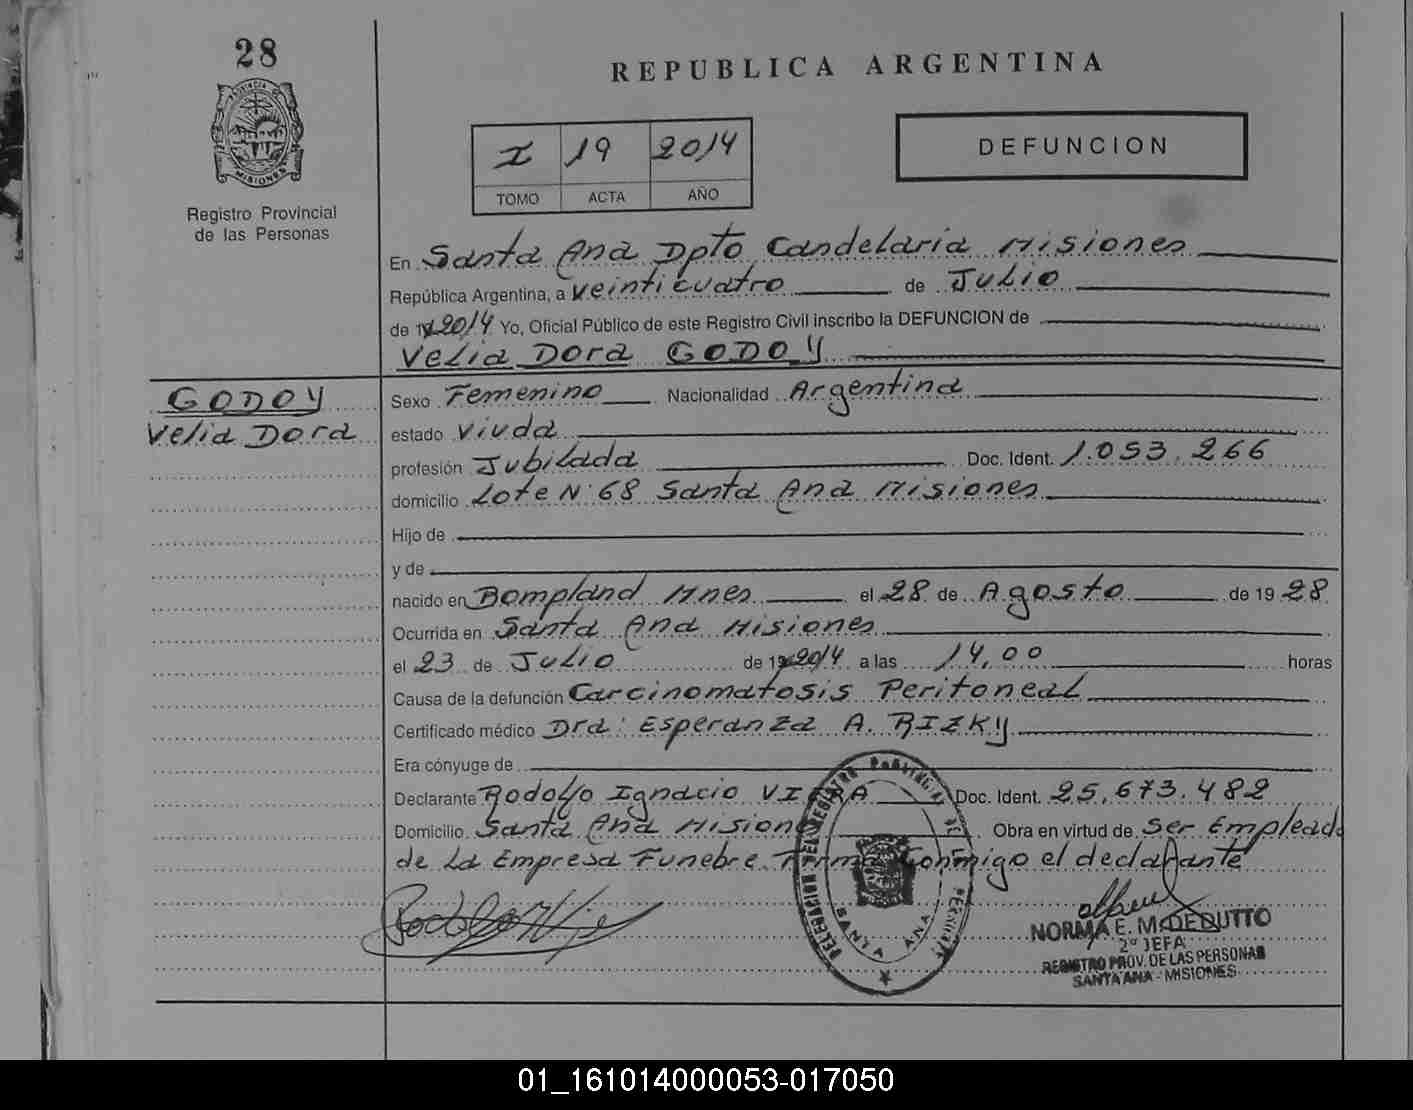 28
PROVINCIA DE
MISIONES
Registro Provincial
de las Personas
REPUBLICA ARGENTINA
I 19 2014
TOMO ACTA AÑO
DEFUNCION
En Santa Ana Dpto Candelaria Misiones
República Argentina, a veinticuatro de Julio
de 2014 Yo, Oficial Público de este Registro Civil inscribo la DEFUNCION de
Velia Dora GODOY
GODOY
Velia Dora
Sexo Femenino Nacionalidad Argentina
estado Viuda
profesión Jubilada Doc. Ident. 1.053.266
domicilio Lote Nº 68 Santa Ana Misiones
Hijo de
y de
nacido en Bompland Mnes el 28 de Agosto de 1928
Ocurrida en Santa Ana Misiones
el 23 de Julio de 2014 a las 14,00 horas
Causa de la defunción Carcinomatosis Peritoneal
Certificado médico Dra: Esperanza A. RIZKY
Era cónyuge de
Declarante Rodolfo Ignacio Doc. Ident. 25.673.482
Domicilio Santa Ana Obra en virtud de Ser Empleado
de La Empresa Funebre. Firma Conmigo el declarante
DELEGACION DEL REGISTRO PROVINCIAL DE LAS PERSONAS
SANTA ANA
NORMA E. M. DEDUTTO
2º JEFA
REGISTRO PROV. DE LAS PERSONAS
SANTA ANA - MISIONES
01_161014000053-017050